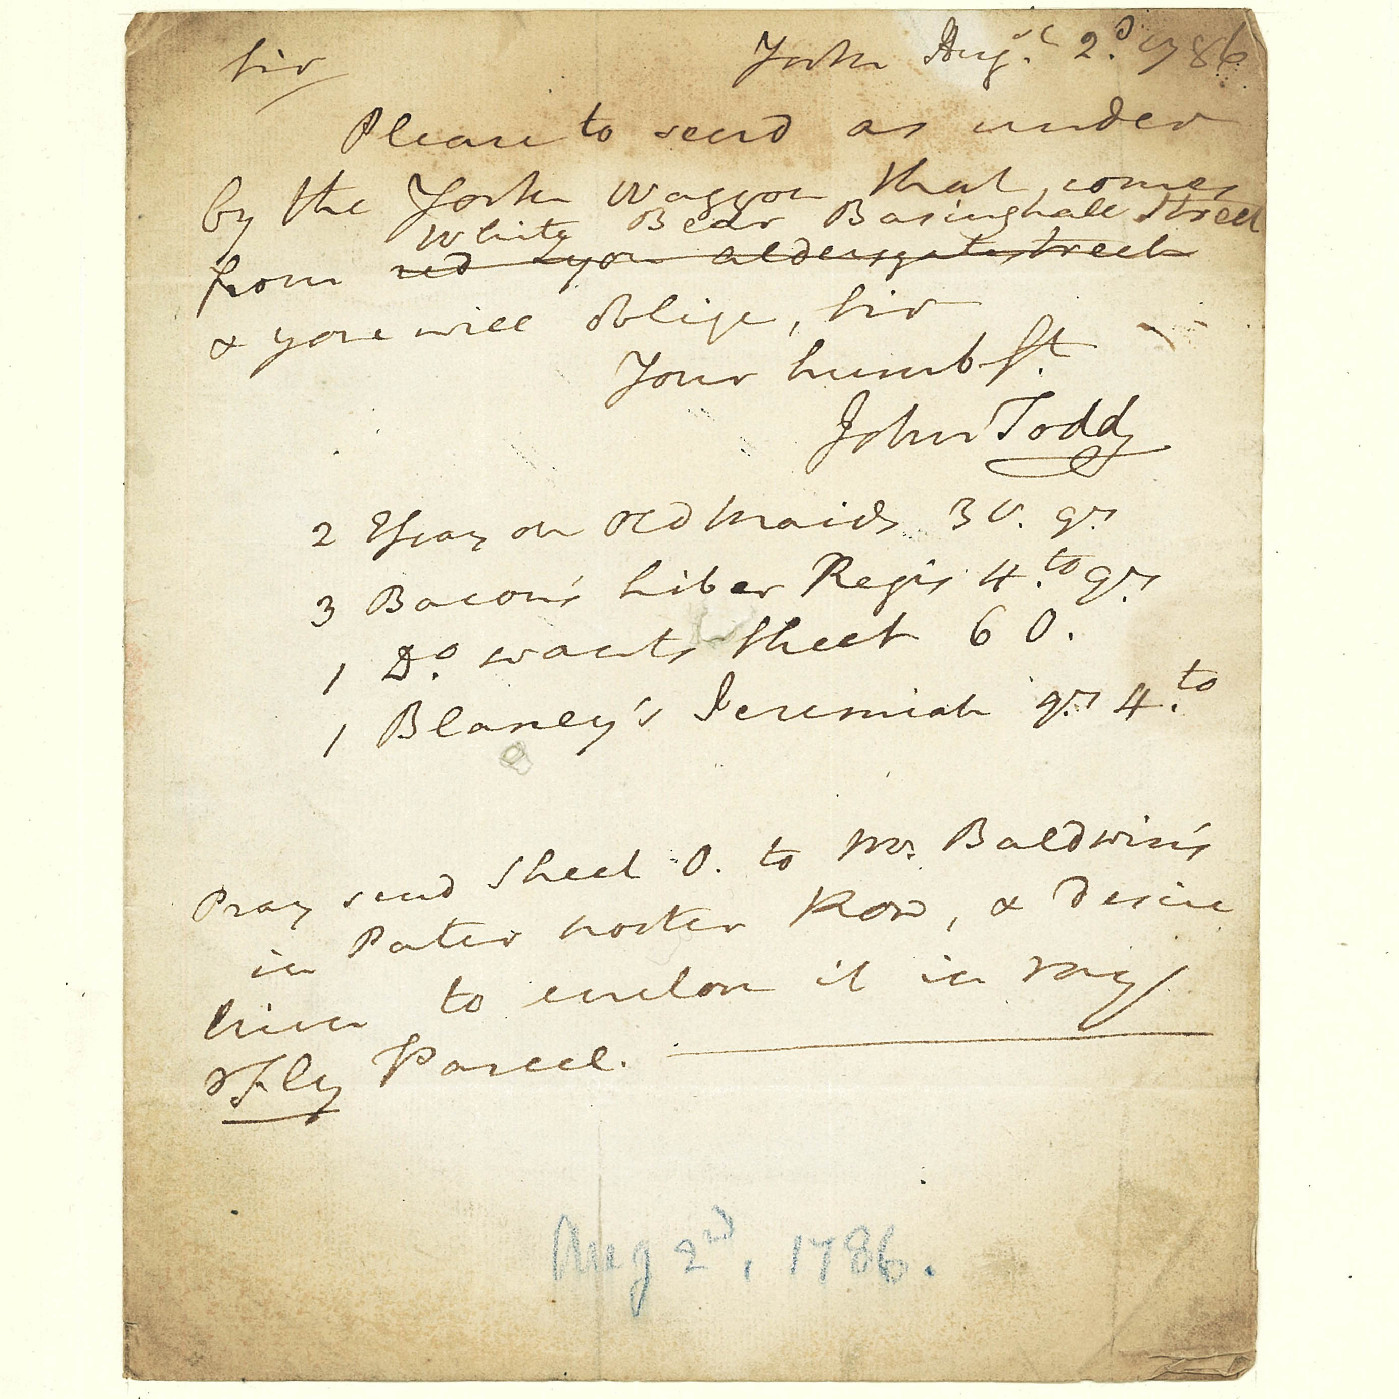 Sir
York Augt. 2d. 1786
Please to send as under
by the York Waggon that comes
White Bear Basinghall Street
from red Lyon aldersgate street
& you will oblige, Sir
Your humb St.
John Todd
2 Essay on Old Maids 3 V. qrs
3 Bacon's Liber Regis 4.to qrs
1 Do. wants Sheet 6 O.
1 Blaney's Jeremiah qrs 4.to
Pray send Sheet O. to Mr. Baldwin's
in Pater noster Row, & desire
him to enclose it in my
Fly Parcel.
Aug 2nd, 1786.